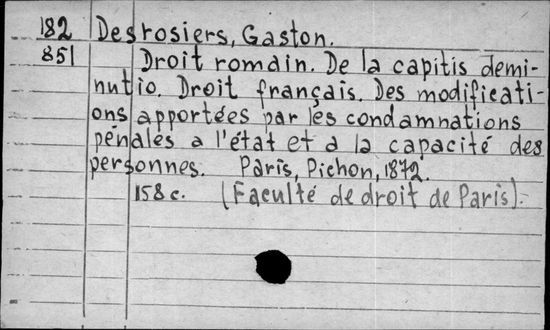 182 Desrosiers, Gaston.
851 Droit romain. De la capitis demi-
nutio. Droit français. Des modificati-
ons apportées par les condamnations
pénales a l'état et a la capacité des
personnes. Paris, Pichon, 1872.
158 c. (Faculté de droit de Paris).